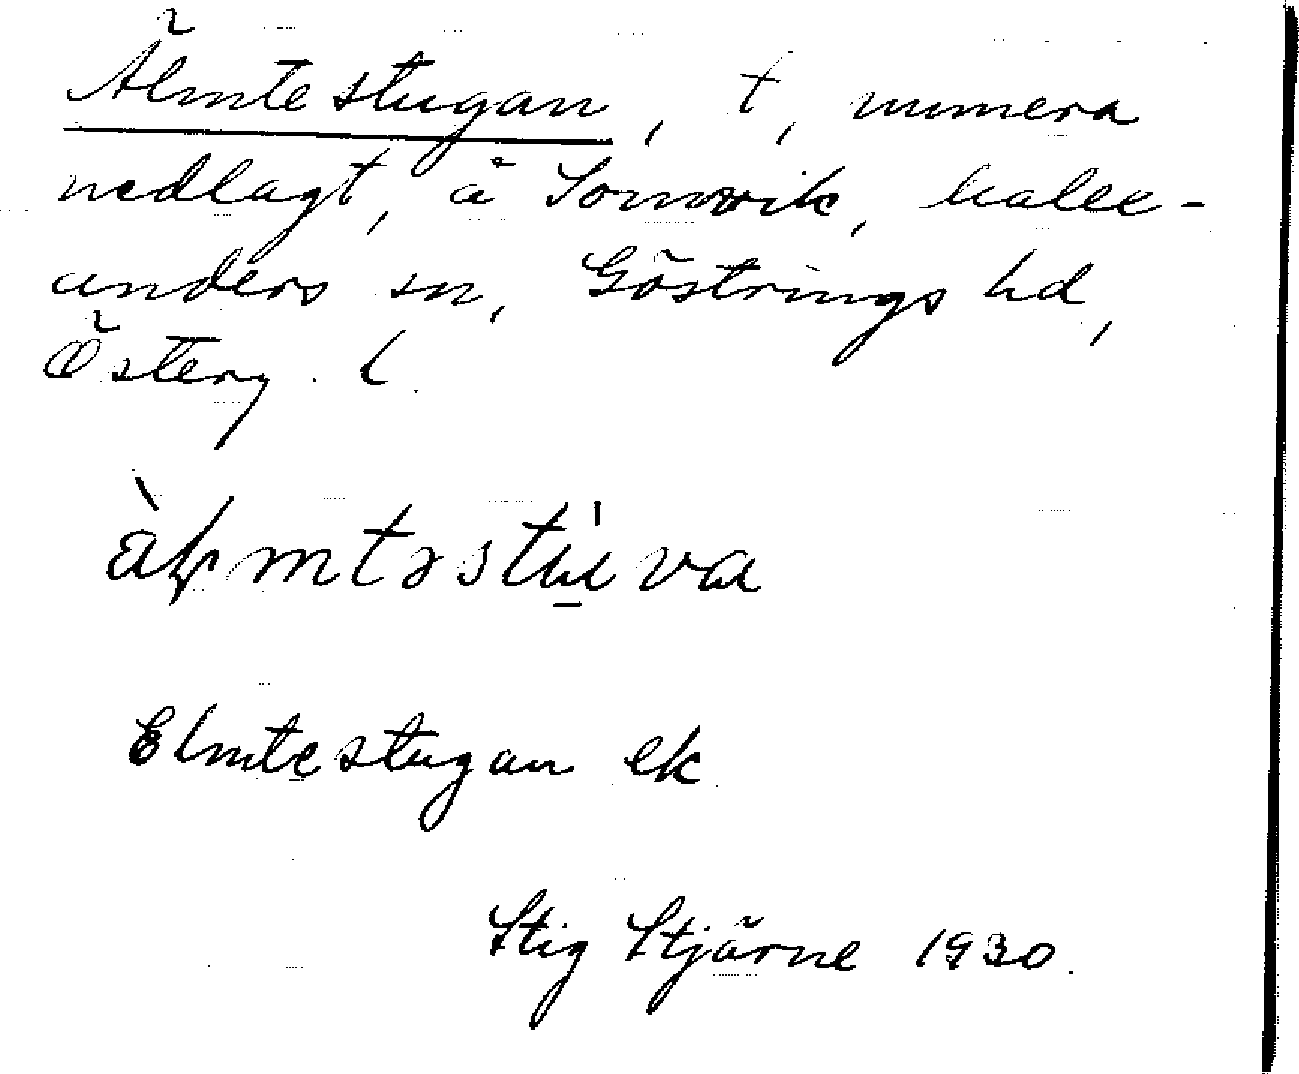 Älmtestugan, t, numera
nedlagt, å Somvik, Malex-
anders sn, Göstrings hd,
Österg. l.
Elmtestugan ek
Stig Stjärne 1930.